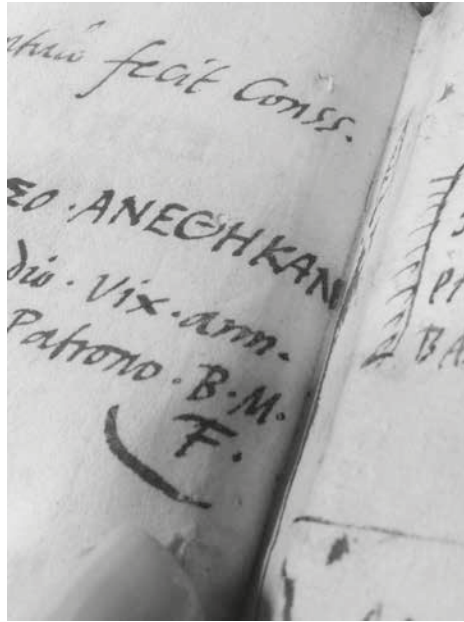 fecit Conss.
ΕΟ · ΑΝΕΘΗΚΑΝ
dio · Vix · ann.
Patrono · B · M.
F.
BA